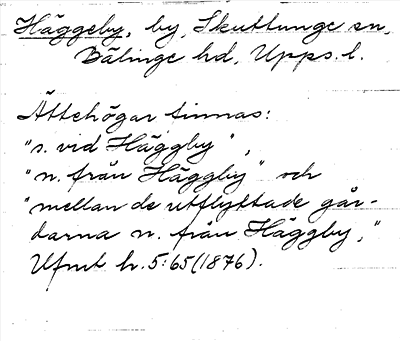 Häggeby, by, Skuttunge sn,
Bälinge hd, Upps. l.
Ättehögar finnas:
"s. vid Häggby",
"n. från Häggby" och
"mellan de utflyttade går-
darna n. från Häggby,"
Ufmt h. 5:65 (1876).